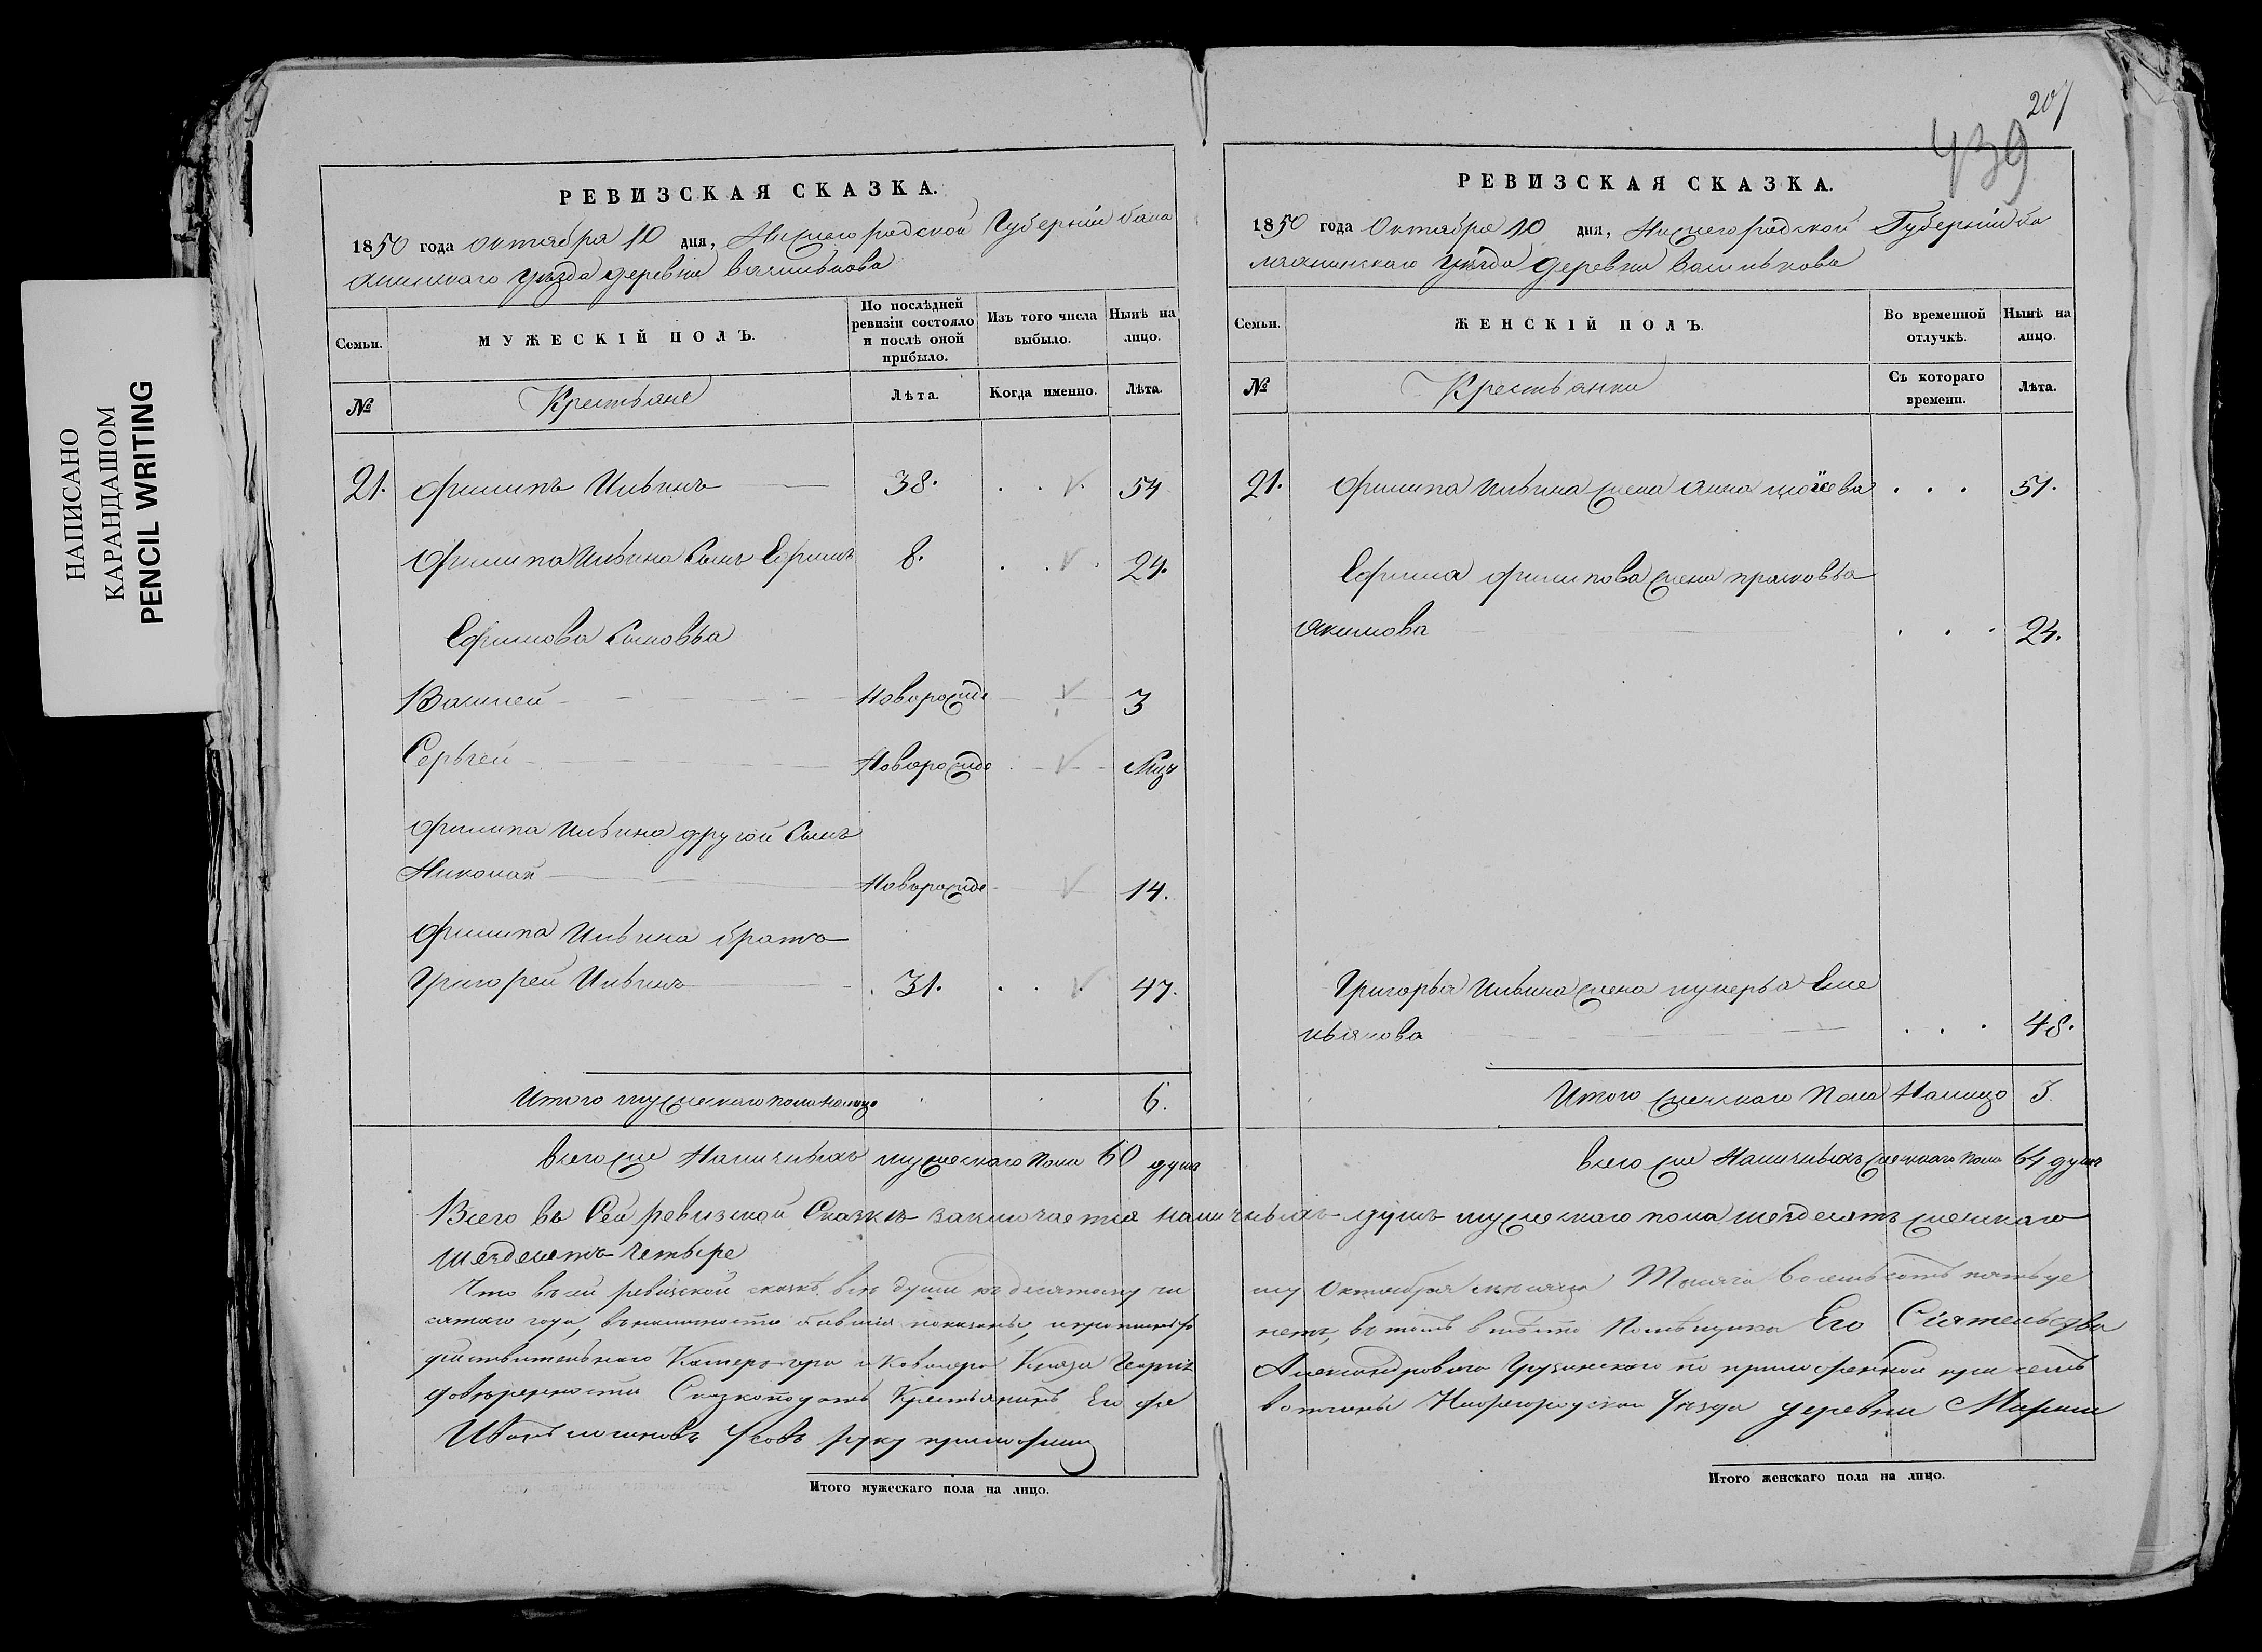 НАПИСАНО
КАРАНДАШОМ
PENCIL WRITING
207
439
РЕВИЗСКАЯ СКАЗКА.
1850 года Октября 10 дня, Нижегородской Губернiи бала
хнинскаго Уезда деревни Василькова
Семьи.
МУЖЕСКIЙ ПОЛЪ.
По послѣдней ревизiи состояло и послѣ оной прибыло.
Изъ того числа выбыло.
Нынѣ на лицо.
№
Крестьяне
Лѣта.
Когда именно.
Лѣта.
21. Филипъ Ильинъ 38. 54
Филипа Ильина Сынъ Ефимъ 8. 24.
Ефимова Сыновья
Василей Новорожде 3
Сергей Новорожде
Филипа Ильина другой Сынъ
Николай Новорожде 14.
Филипа Ильина братъ
Григорей Ильинъ 31. 47.
Итого мужескаго пола налицо 6.
Всего же Наличныхъ мужескаго пола 60 душъ
РЕВИЗСКАЯ СКАЗКА.
1850 года Октября 10 дня, Нижегородской Губернiи ба
лахнинскаго Уезда деревни Василькова
Семьи.
ЖЕНСКIЙ ПОЛЪ.
Во временной отлучкѣ.
Нынѣ на лицо.
№
Крестьянки
Съ котораго времени.
Лѣта.
21. Филипа Ильина жена Анна 51.
Ефима Филипова жена прасковья
Якимова 24.
Григорья Ильина жена лукерья Еме
льянова 48.
Итого женскаго Пола Налицо 3
Всего же Наличныхъ женскаго пола 64 душъ
Всего въ Сей ревизской Сказкѣ заключается наличныхъ душъ мужескаго пола шездесятъ женскаго
шездесятъ четыре
Что въ сей ревизской сказкѣ все души къ десятому чи
слу Октября месяца Тысяча восемьсотъ пятьде
сятаго года, въ наличности бывшiя показаны, и
нетъ, въ томъ вместо Помещика Его Сiятельства
действительнаго Камергера и Кавалера Князя Георгiя
Александровича Грузинскаго по приложенной при семъ
доверенности Сказкоподатель Крестьянинъ Его же
вотчины Нижегородскаго Уезда деревни
Иванъ Усовъ руку приложилъ
Итого мужескаго пола на лицо.
Итого женскаго пола на лицо.